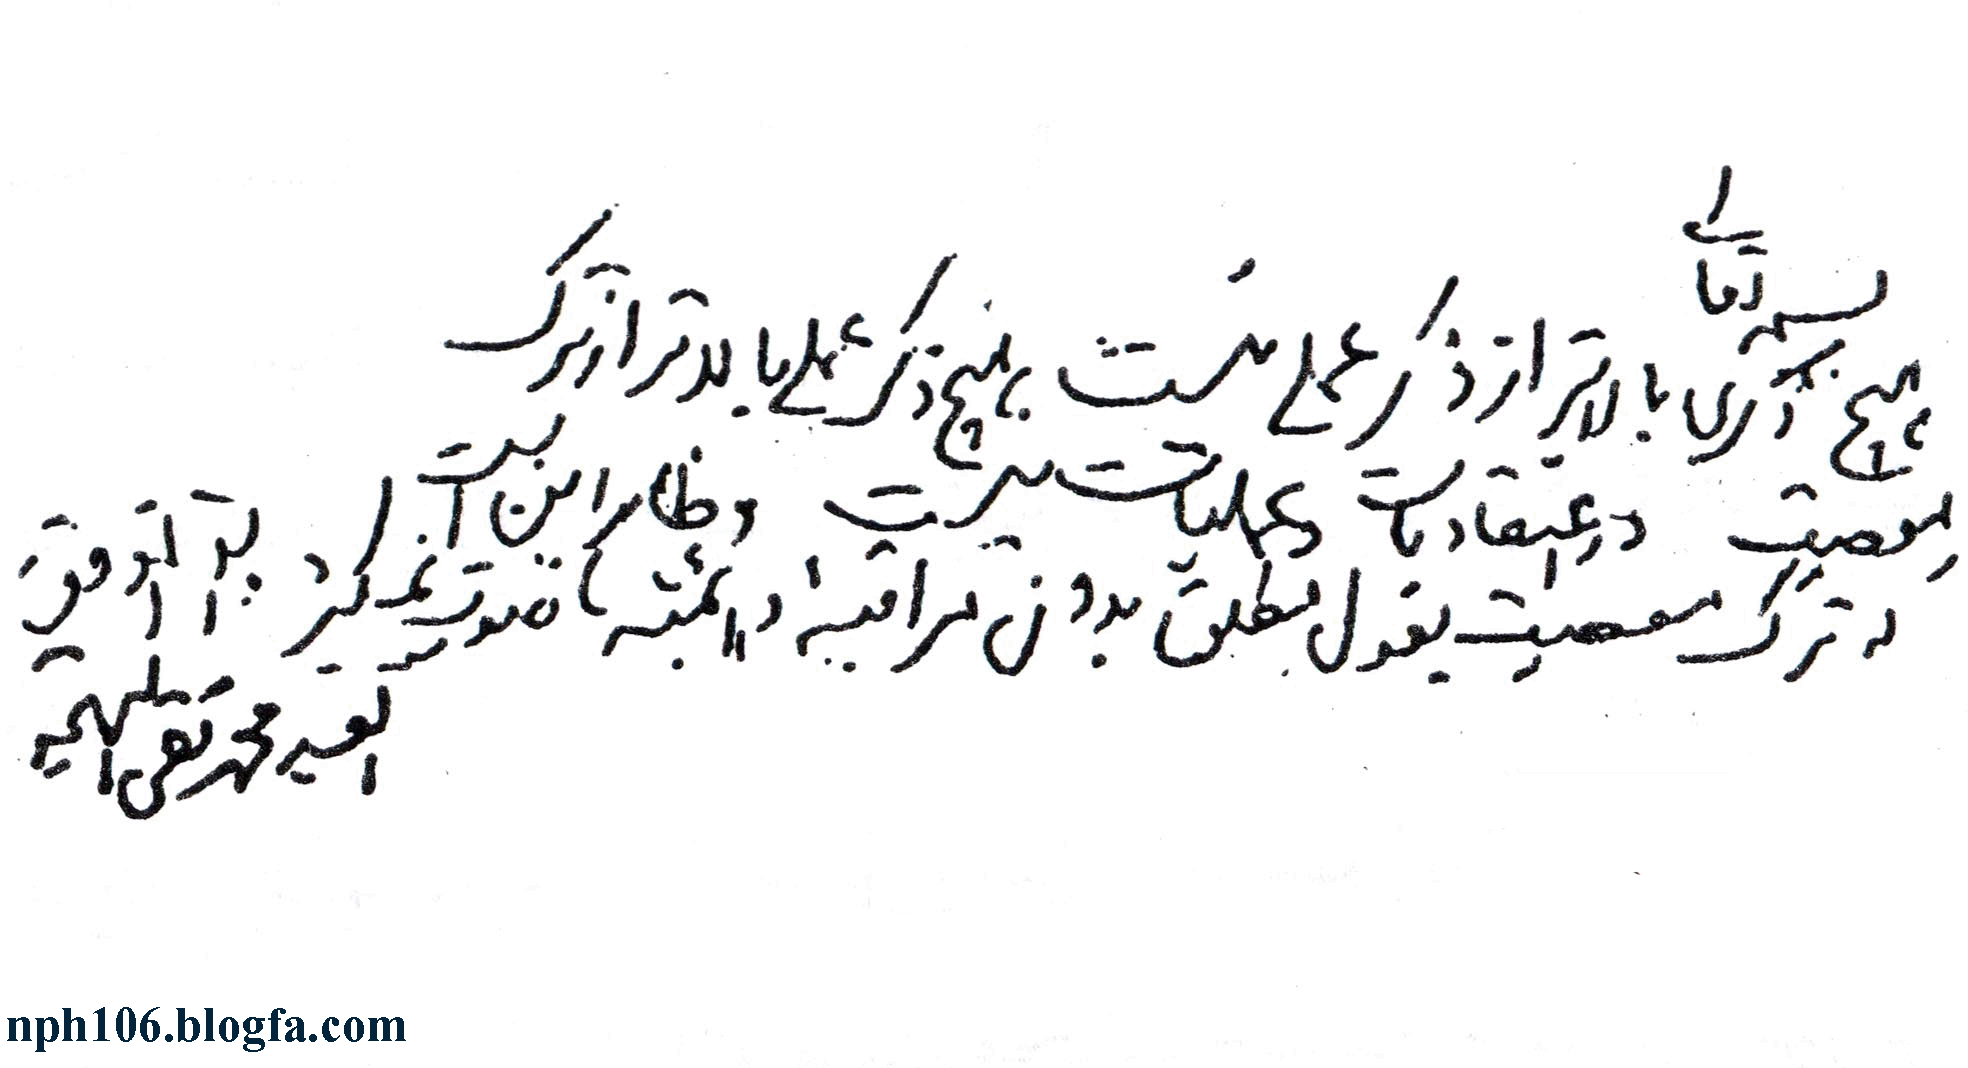 بسمه تعالی
هیچ ذکری بالاتر از ذکر عملی نیست هیچ ذکر عملی بالاتر از ترک
معصیت در اعتقادیات و عملیات نیست و ظاهر این است
که ترک معصیت بقول مطلق بدون مراقبهٔ دائمیه صورت نمی‌گیرد والله الموفق
العبد محمد تقی البهجة
nph106.blogfa.com